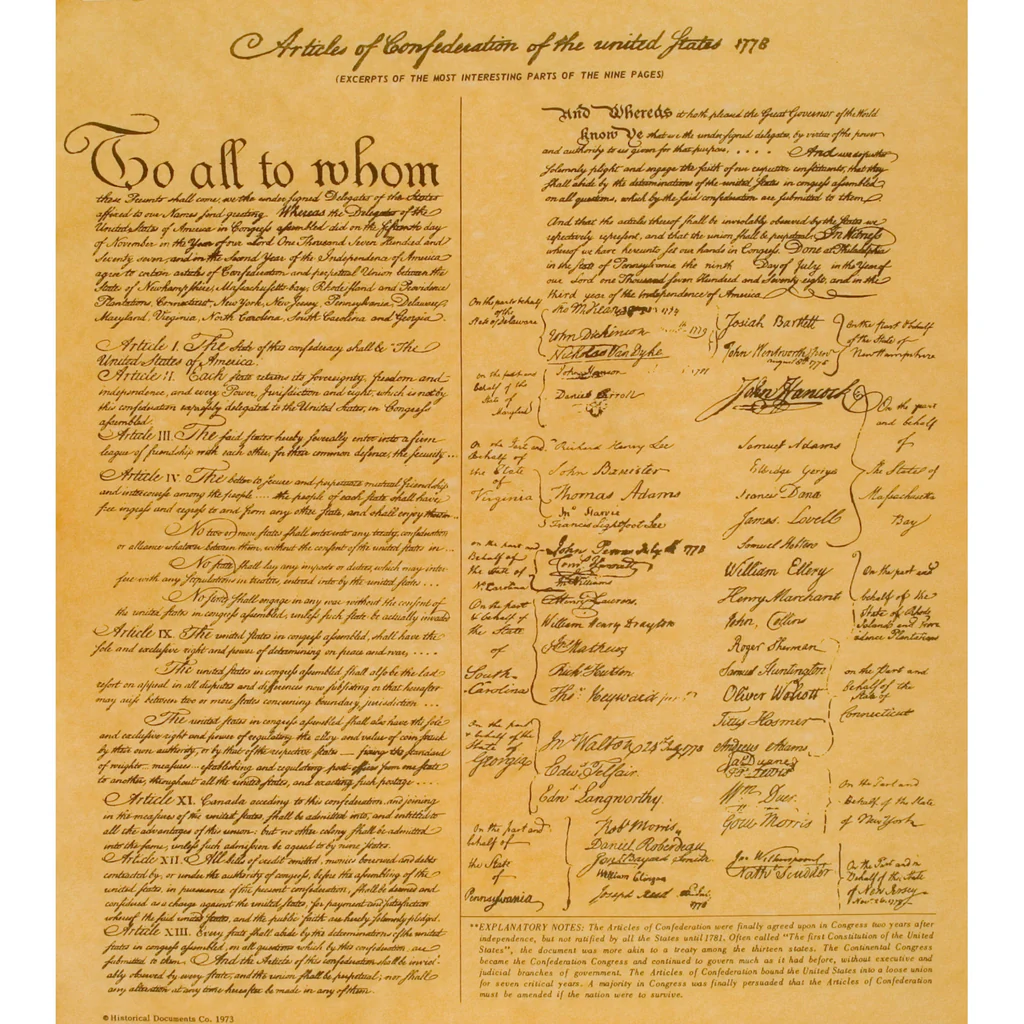 Articles of Confederation of the united States 1778
(EXCERPTS OF THE MOST INTERESTING PARTS OF THE NINE PAGES)
To all to whom
these Presents shall come, we the under signed Delegates of the States
affixed to our Names send greeting. Whereas the Delegates of the
United States of America in Congress assembled did on the fifteenth day
of November in the Year of our Lord One Thousand Seven Hundred and
Seventy seven, and in the Second Year of the Independence of America
agree to certain articles of Confederation and perpetual Union between the
States of Newhampshire, Massachusetts-bay, Rhodeisland and Providence
Plantations, Connecticut, New York, New Jersey, Pennsylvania, Delaware,
Maryland, Virginia, North Carolina, South Carolina and Georgia.
Article I. The Stile of this confederacy shall be "The
United States of America.
Article II. Each state retains its Sovereignty, freedom and
independence, and every Power, Jurisdiction and right, which is not by
this confederation expressly delegated to the United States, in Congress
assembled.
Article III. The said states hereby severally enter into a firm
league of friendship with each other, for their common defence, the security ...
Article IV. The better to secure and perpetuate mutual friendship
and intercourse among the people .... the people of each state shall have
free ingress and regress to and from any other state, and shall enjoy
No two or more states shall enter into any treaty, confederation
or alliance whatever between them, without the consent of the united states in ...
No state shall lay any imposts or duties, which may inter-
fere with any stipulations in treaties, entered into by the united states ....
No state shall engage in any war without the consent of
the united states in congress assembled, unless such state be actually invaded
Article IX. The united states in congress assembled, shall have the
sole and exclusive right and power of determining on peace and war, ....
The united states in congress assembled shall also be the last
resort on appeal in all disputes and differences now subsisting or that hereafter
may arise between two or more states concerning boundary, jurisdiction ...
The united states in congress assembled shall also have the sole
and exclusive right and power of regulating the alloy and value of coin struck
by their own authority, or by that of the respective states — fixing the standard
of weights measures — establishing and regulating post-offices from one state
to another, throughout all the united states, and exacting such postage ....
Article XI. Canada acceding to this confederation, and joining
in the measures of the united states, shall be admitted into, and entitled to
all the advantages of this union: but no other colony shall be admitted
into the same, unless such admission be agreed to by nine states.
Article XII. All bills of credit emitted, monies borrowed and debts
contracted by, or under the authority of congress, before the assembling of the
united states, in pursuance of the present confederation, shall be deemed and
considered as a charge against the united states, for payment and satisfaction
whereof the said united states, and the public faith are hereby solemnly pledged.
Article XIII. Every state shall abide by the determinations of the united
states in congress assembled, on all questions which by this confederation are
submitted to them. And the Articles of this confederation shall be invio-
ably observed by every state, and the union shall be perpetual; nor shall
any alteration at any time hereafter be made in any of them.
© Historical Documents Co. 1973
And Whereas it hath pleased the Great Governor of the World
Know Ye that we the undersigned delegates, by virtue of the power
and authority to us given for that purpose, .... And we do further
solemnly plight and engage the faith of our respective constituents, that they
shall abide by the determinations of the united states in congress assembled
on all questions, which by the said confederation are submitted to them.
And that the articles thereof shall be inviolably observed by the states we
respectively represent, and that the union shall be perpetual. In Witness
whereof we have hereunto set our hands in Congress. Done at Philadelphia
in the state of Pennsylvania the ninth Day of July in the Year of
our Lord one Thousand Seven Hundred and Seventy-eight, and in the
third year of the independence of America
On the part & behalf
of the
State of Delaware
Tho M:Kean
John Dickinson
Nicholas Van Dyke
Josiah Bartlett
John Wentworth Junr
august 8th 1778
On the part & behalf
of the State of
New Hampshire
on the part and
behalf of the
State of
Maryland
John Hanson
Daniel Carroll
John Hancock
Samuel Adams
Elbridge Gerry
Francis Dana
James Lovell
Samuel Holten
On the part
and behalf
of
The State of
Massachusetts
Bay
On the Part and
Behalf of
the State
of
Virginia
Richard Henry Lee
John Banister
Thomas Adams
Jno Harvie
Francis Lightfoot Lee
on the part and
Behalf of
the State of
No Carolina
John Penn July 1778
Jno Williams
William Ellery
Henry Marchant
John Collins
On the part and
behalf of the
State of Rhode
Island and Prov-
idence Plantations
On the part
& behalf of
the State
of
South-
Carolina
Henry Laurens.
William Henry Drayton
Jno Mathews
Richd Hutson
Thos Heyward junr
Roger Sherman
Samuel Huntington
Oliver Wolcott
Titus Hosmer
Andrew Adams
on the Part and
behalf of the
State of
Connecticut
On the part
& behalf of the
State of
Georgia
Jno Walton 24th July 1778
Edwd Telfair.
Edwd Langworthy.
Jas Duane
Fra: Lewis
Wm Duer.
Gouv Morris
On the Part and
Behalf of the State
of New York
On the part and
behalf of
the State
of
Pennsylvania
Robt Morris
Daniel Roberdeau
Jona Bayard Smith.
William Clingan
Joseph Reed
1778
Jno Witherspoon
Nathl Scudder
On the Part and in
Behalf of the State
of New Jersey
Novr 26. 1778
**EXPLANATORY NOTES: The Articles of Confederation were finally agreed upon in Congress two years after
independence, but not ratified by all the States until 1781. Often called "The first Constitution of the United
States", the document was more akin to a treaty among the thirteen states. The Continental Congress
became the Confederation Congress and continued to govern much as it had before, without executive and
judicial branches of government. The Articles of Confederation bound the United States into a loose union
for seven critical years. A majority in Congress was finally persuaded that the Articles of Confederation
must be amended if the nation were to survive.